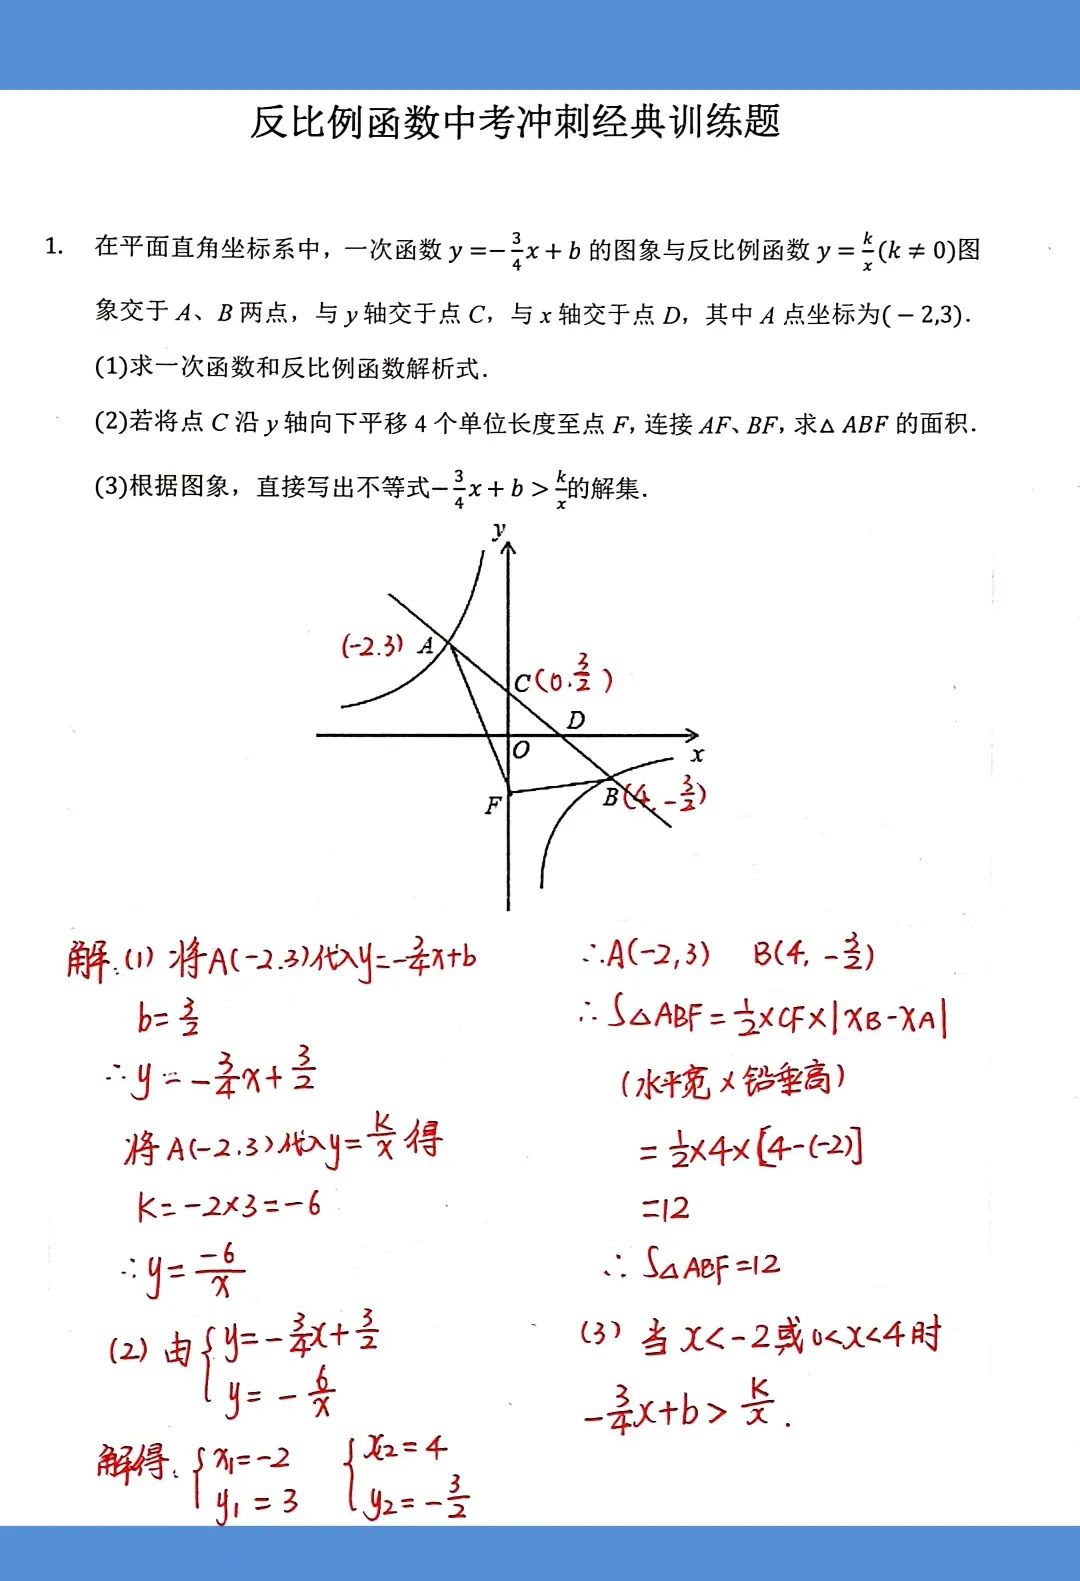 反比例函数中考冲刺经典训练题
1. 在平面直角坐标系中，一次函数 y =－3/4x + b 的图象与反比例函数 y = k/x(k ≠ 0)图
象交于 A、B 两点，与 y 轴交于点 C，与 x 轴交于点 D，其中 A 点坐标为(－2,3)．
(1)求一次函数和反比例函数解析式．
(2)若将点 C 沿 y 轴向下平移 4 个单位长度至点 F，连接 AF、BF，求△ ABF 的面积．
(3)根据图象，直接写出不等式－3/4x + b > k/x的解集．
y
(-2.3) A
C(0.3/2)
D
O
x
F
B(4, -3/2)
解:(1) 将A(-2.3)代入y=-3/4x+b
b=3/2
∴y=-3/4x+3/2
将A(-2.3)代入y=K/x得
K=-2×3=-6
∴y=-6/x
(2) 由{y=-3/4x+3/2
y=-6/x
解得:{x1=-2 {x2=4
y1=3 y2=-3/2
∴A(-2,3) B(4, -3/2)
∴S△ABF=1/2×CF×|xB-xA|
(水平宽×铅垂高)
=1/2×4×[4-(-2)]
=12
∴S△ABF=12
(3) 当x<-2或0<x<4时
-3/4x+b>K/x.